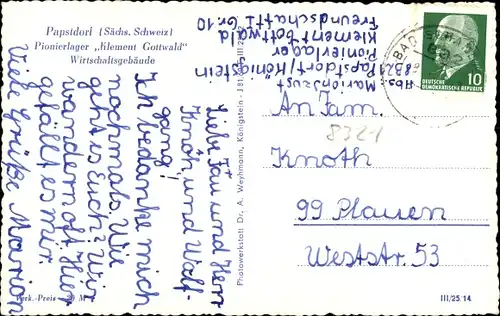 Papstdorf (Sächs. Schweiz)
Pionierlager „Klement Gottwald"
Wirtschaftsgebäude
Liebe Fam und Herr
Knoth, und Wolf-
gang!
Ich bedanke mich
nochmals. Wie
geht es Euch? Wir
wandern oft. Hier
gefällt es mir
Viele Grüße Marion
Photowerkstatt Dr. A. Weyhmann, Königstein
Abs
8321 Papstdorf/Königstein
Pionierlager
Klement Gottwald
Freundschaft 1 Gr. 10
BAD
DEUTSCHE
DEMOKRATISCHE REPUBLIK
10
An Fam.
832-1
Knoth
99 Plauen
Weststr. 53
Verk.-Preis
III/25/14